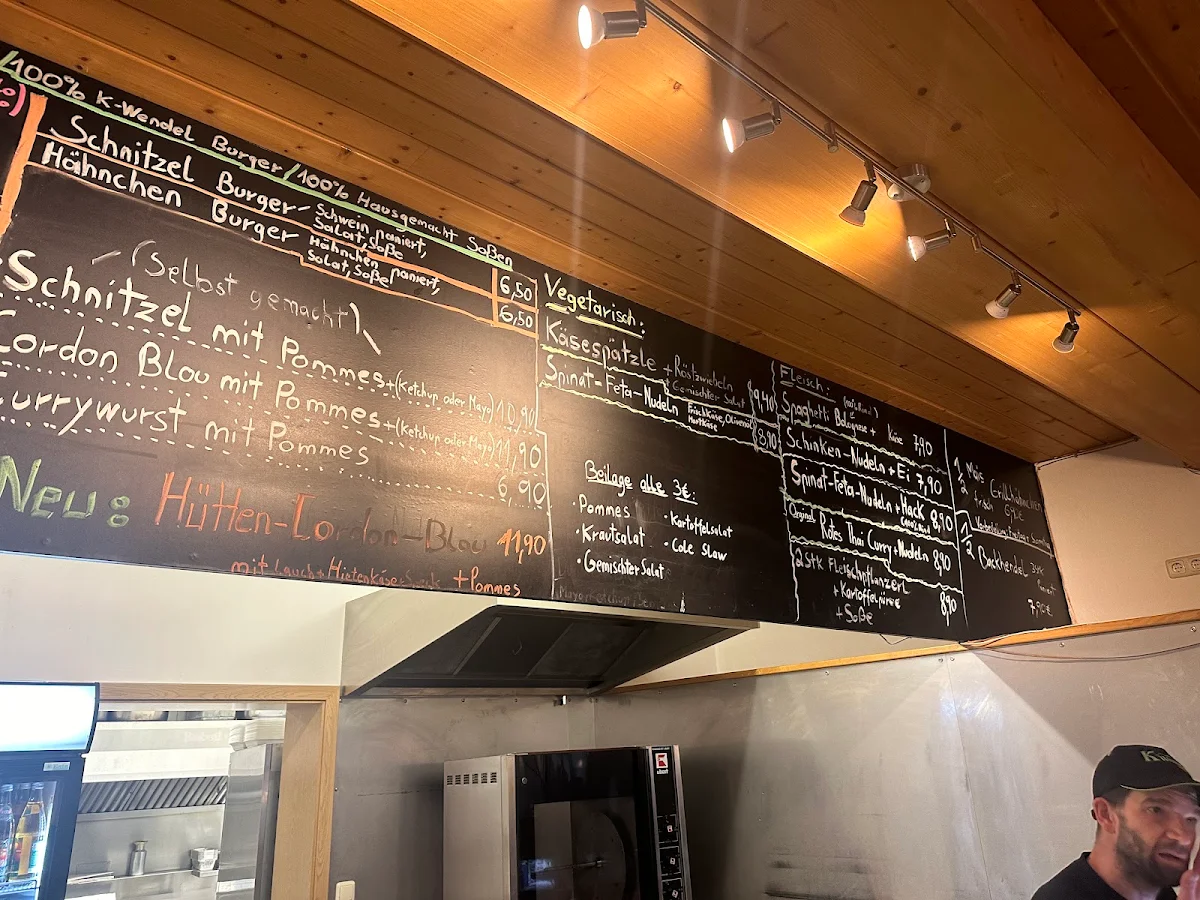 /100% K-Wendel Burger/100% Hausgemacht Soßen
Schnitzel Burger - Schwein paniert,
Salat, Soße
6,50
Hähnchen Burger Hähnchen paniert,
Salat, Soße
6,50
(Selbst gemacht)
Schnitzel mit Pommes +(Ketchup oder Mayo) 10,90
Cordon Blou mit Pommes +(Ketchup oder Mayo) 11,90
Currywurst mit Pommes
6,90
Neu: Hütten-Cordon-Blou 11,90
mit Lauch + Hirtenkäse +Pommes
Vegetarisch:
Käsespätzle + Röstzwiebeln
+ Gemischter Salat 9,40
Spinat-Feta-Nudeln Frischkäse, Olivenöl
Hartkäse 8,10
Beilage alle 3€:
·Pommes
·Krautsalat
·Gemischter Salat
·Kartoffelsalat
·Cole Slaw
Fleisch:
Spaghetti Bolognese + Käse 7,90
Schinken-Nudeln + Ei 7,90
Spinat-Feta-Nudeln + Hack 8,90
Original Rotes Thai Curry + Nudeln 8,90
2 Stk Fleischpflanzerl
+ Kartoffelpüree
+ Soße
8,90
1/2 Mais Grillhähnchen
frisch
1/2 Backhendel
7,90€